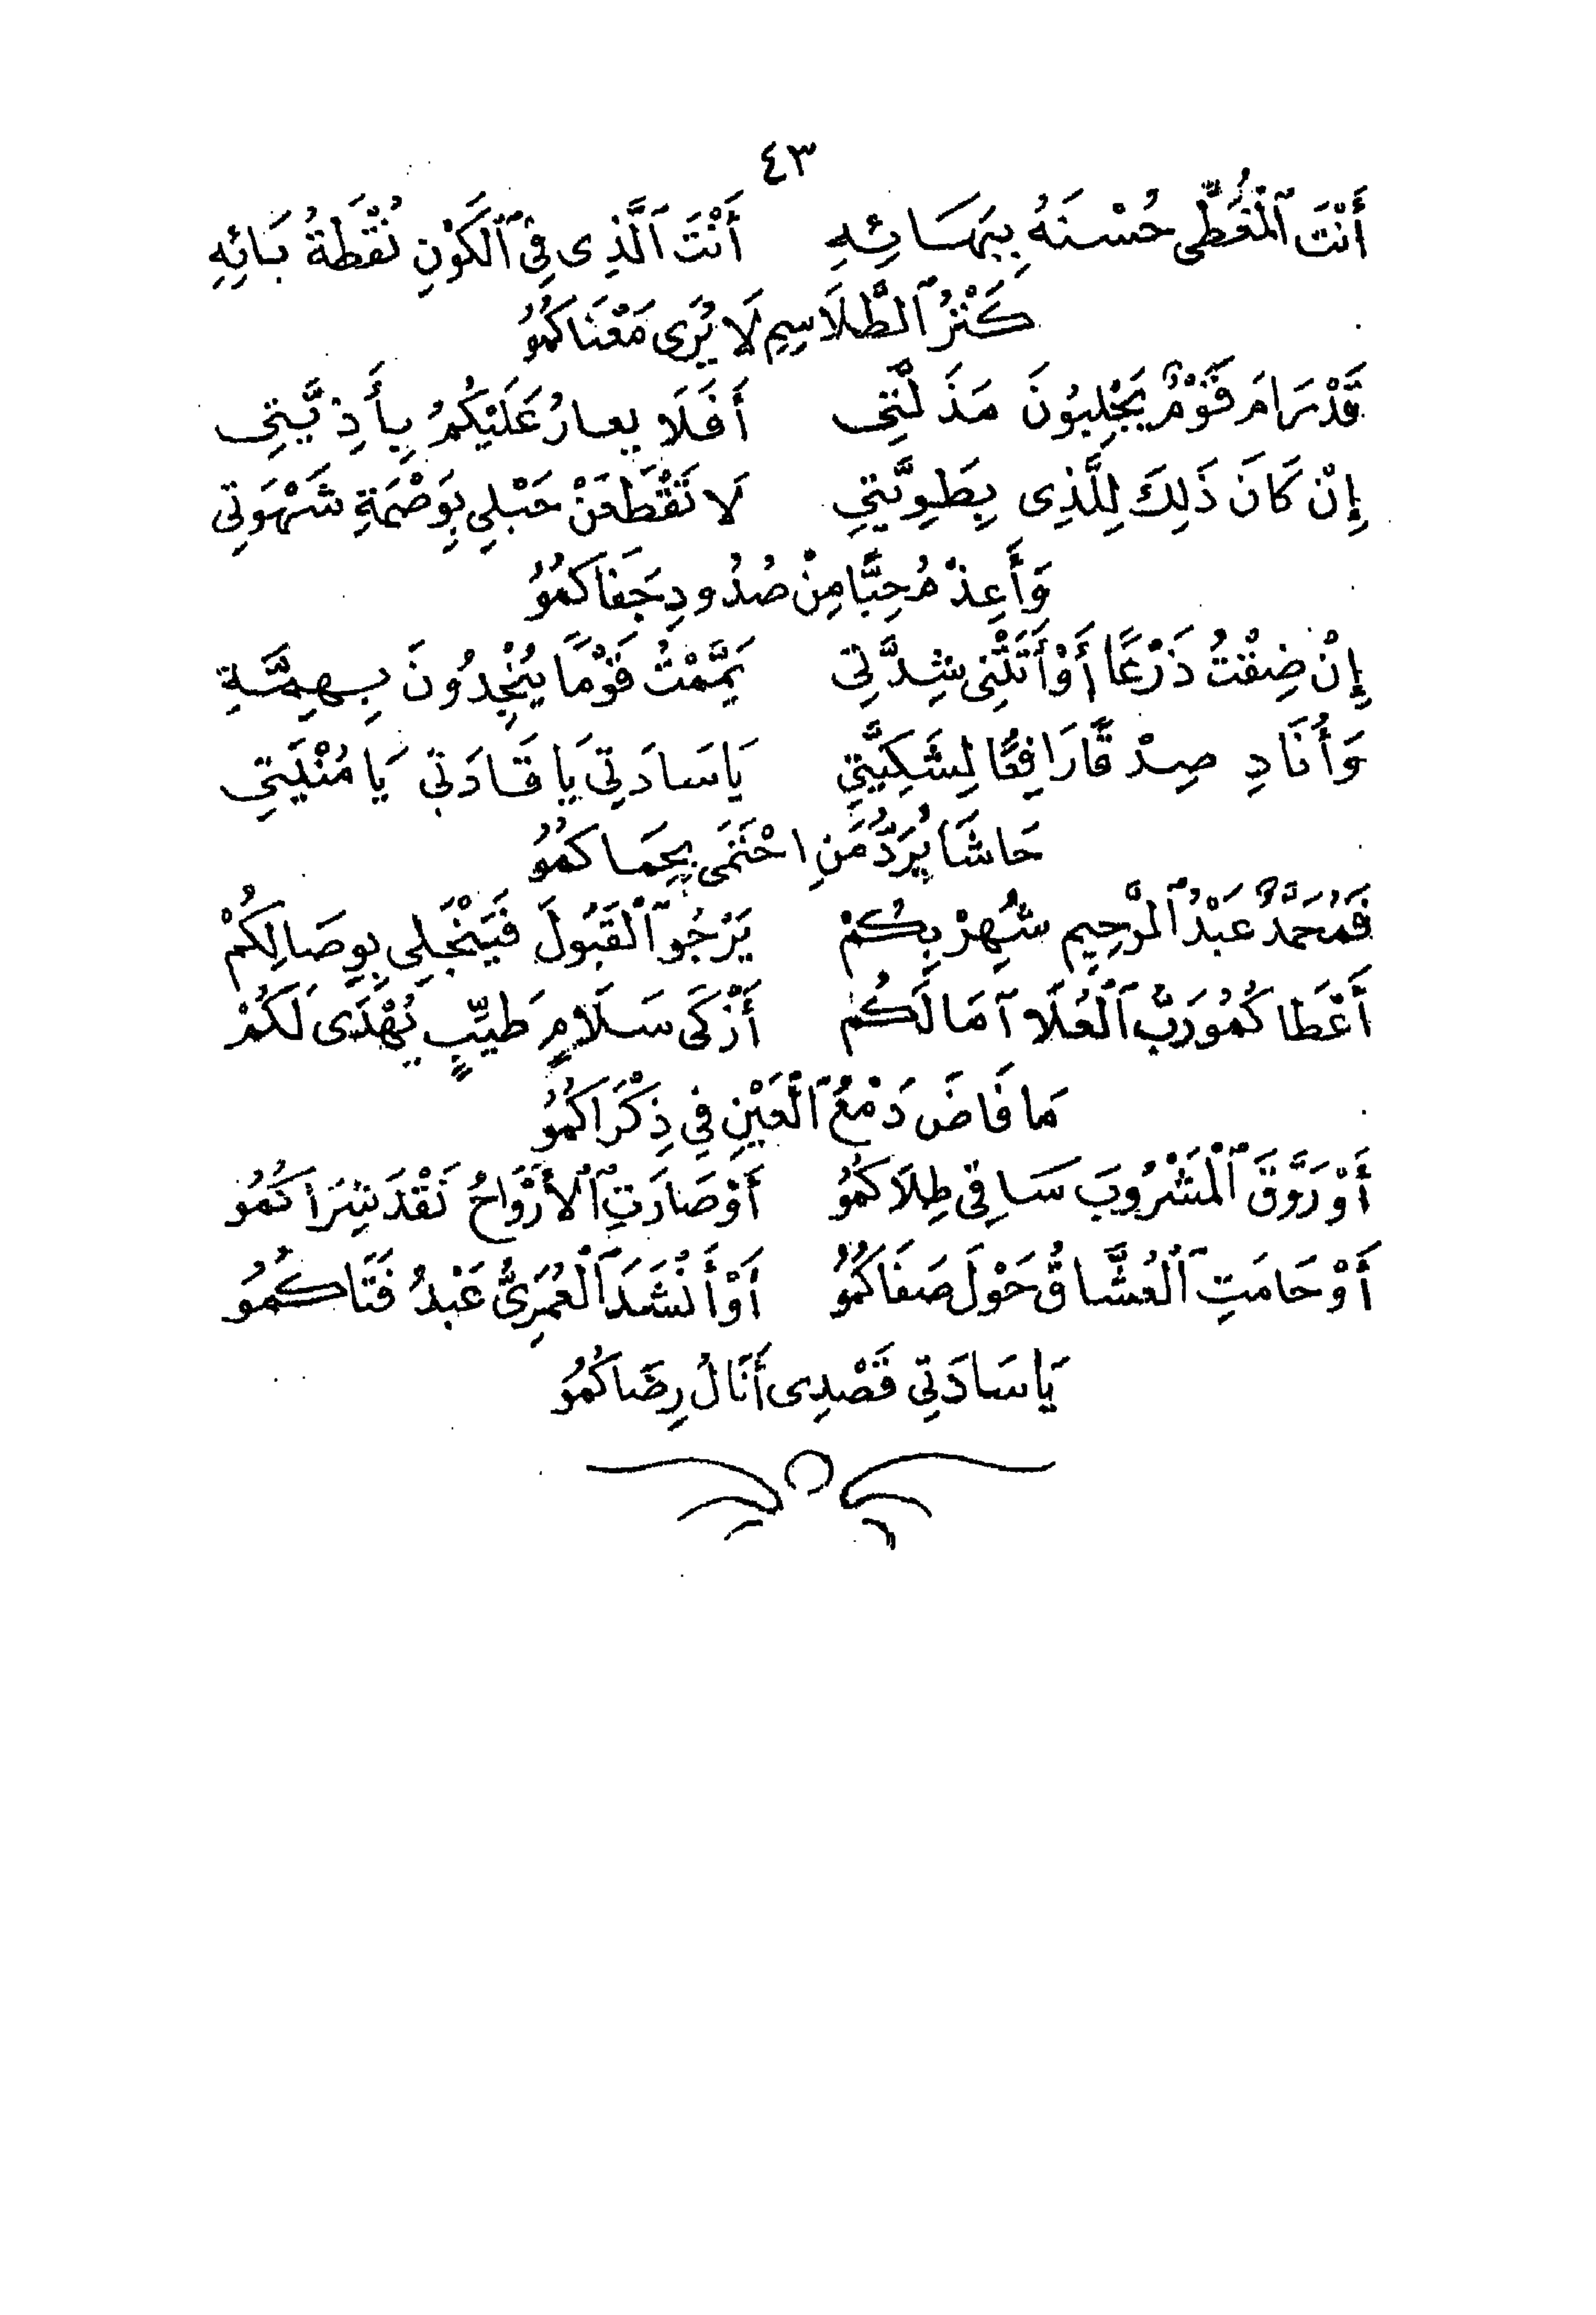 ٤٣
أَنْتَ ٱلْمُغَطِّى حُسْنَهُ بِبَهَائِهِ أَنْتَ ٱلَّذِى فِى ٱلْكَوْنِ نُقْطَةُ بَائِهِ
كَنْزُ ٱلطَّلَاسِمِ لَا يُرَى مَعْنَاكُمُو
قَدْ رَامَ قَوْمٌ يَجْلِبُونَ مَذَلَّتِى أَفَلَا يعارُ عَلَيْكُمُ بِأَذِيَّتِى
إِنْ كَانَ ذَلِكَ لِلَّذِى بِطَوِيَّتِي لَا تَقْطَعَنْ حَبْلِي بِوَصْمَةِ شَهْوَتِى
وَأَعِذْ مُحِبًّا مِنْ صُدُودِ جَفَاكُمُو
إِنْ ضِقْتُ ذَرْعًا أَوْ أَتَتْنِى شِدَّتِى يَمَّمْتُ قَوْمًا يُنْجِدُونَ بِهِمَّةِ
وَأُنَادِ صِدْقًا رَافِعًا لِشَكِيَّتِي يَا سَادَتِي يَا قَادَتِي يَا مُنْيَتِي
حَاشَا يُرَدُّ مَنِ احْتَمَى بِحِمَاكُمُو
فَمُحَمَّدٌ عَبْدُ ٱلرَّحِيمِ شُهِرْ بِكُمْ يَرْجُو ٱلْقَبُولَ فَيَنْجَلِي بِوِصَالِكُمْ
أَعْطَاكُمُو رَبُّ ٱلْعُلَا آمَالَكُم أَزْكَى سَلَامٍ طَيِّبٍ يُهْدَى لَكُمْ
مَا فَاضَ دَمْعُ ٱلْعَيْنِ فِي ذِكْرَاكُمُو
أَوْ رَوَّقَ ٱلْمَشْرُوبَ سَاقِى طِلَاكُمُو أَوْ صَارَتِ ٱلْأَرْوَاحُ نَقْدَ شِرَاكُمُو
أَوْ حَامَتِ ٱلْعُشَّاقُ حَوْلَ صَفَاكُمُو أَوْ أَنْشَدَ ٱلْعُمَرِىُّ عَبْدُ فَتَاكُمُو
يَا سَادَتِي قَصْدِى أَنَالُ رِضَاكُمُو